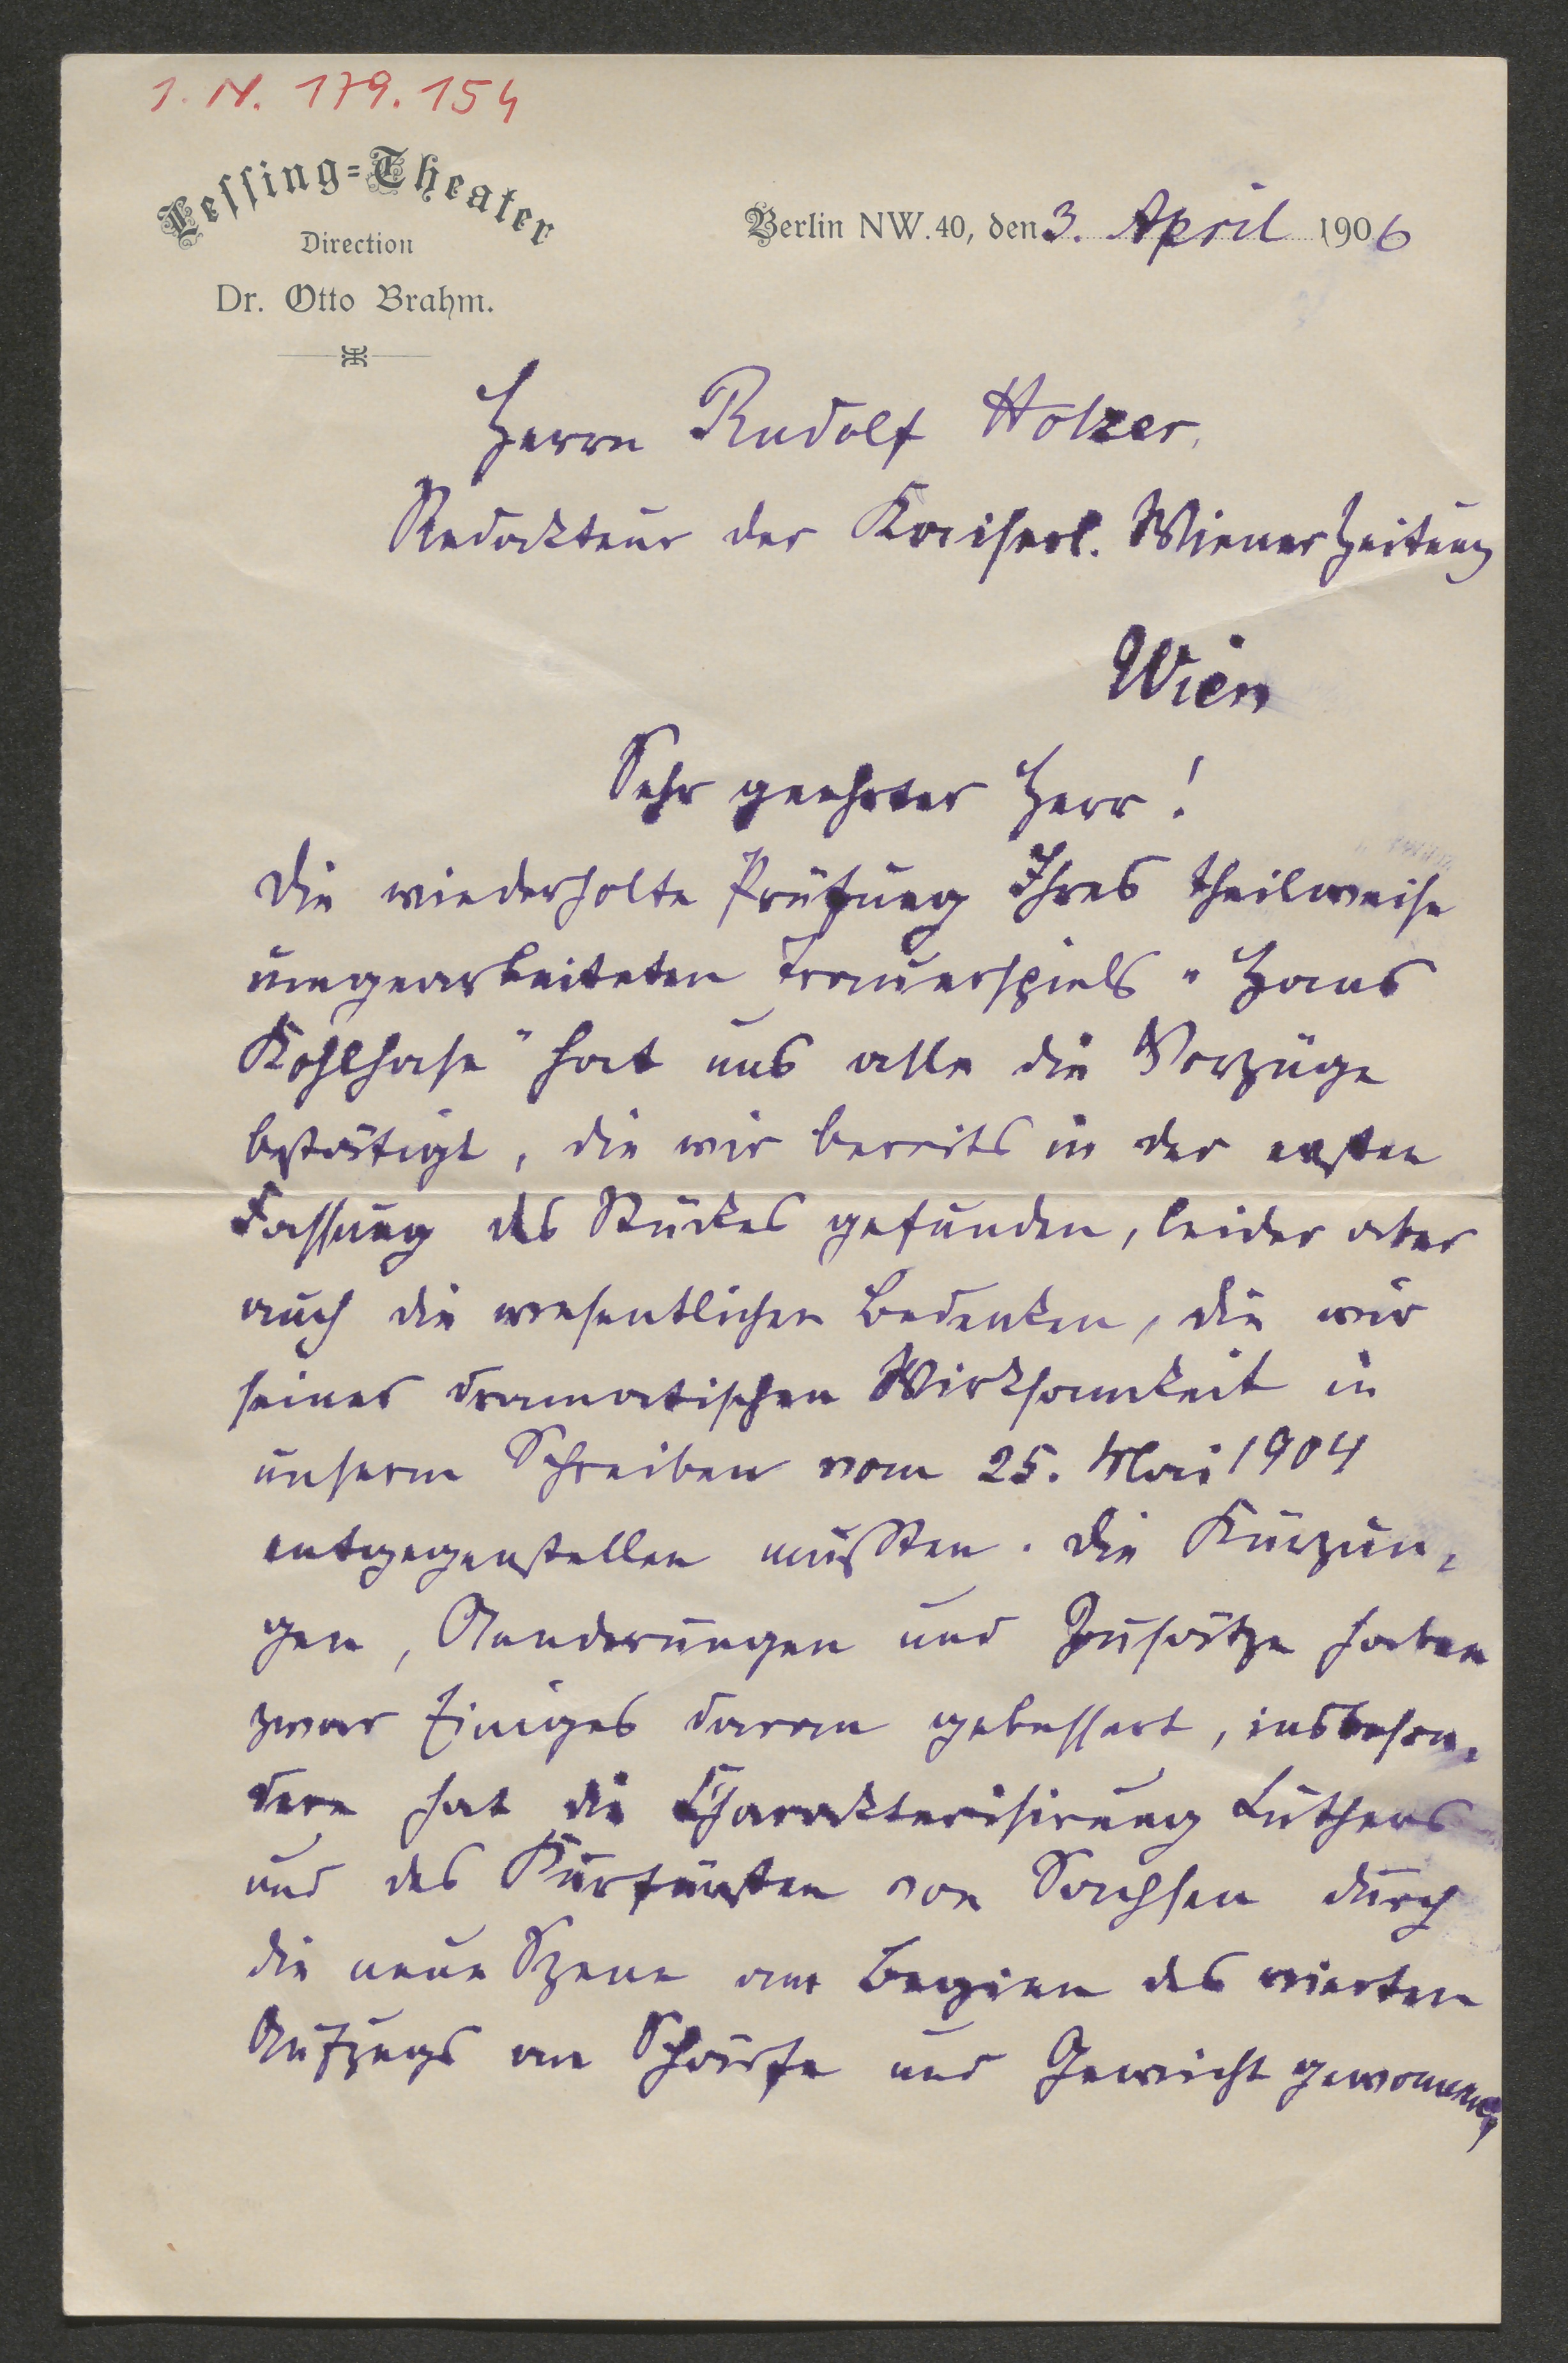 I. N. 179.154
Lessing=Theater
Direction
Dr. Otto Brahm.
Berlin NW. 40, den 3. April 1906
Herrn Rudolf Holzer,
Redakteur der Kaiserl. Wiener Zeitung
Wien
Sehr geehrter Herr!
Die wiederholte Prüfung Ihres theilweise
umgearbeiteten Trauerspiels "Hans
Kohlhase" hat uns alle die Vorzüge
bestätigt, die wir bereits in der ersten
Fassung des Stückes gefunden, leider aber
auch die wesentlichen Bedenken, die wir
seiner dramatischen Wirksamkeit in
unserm Schreiben vom 25. Mai 1904
entgegenstellen mußten. Die Kürzun-
gen, Aenderungen und Zusätze haben
zwar Einiges daran gebessert, insbeson-
dere hat die Charakterisirung Luthers
und des Kurfürsten von Sachsen durch
die neue Szene am Beginn des vierten
Aufzugs an Schärfe und Gewicht gewonnen,